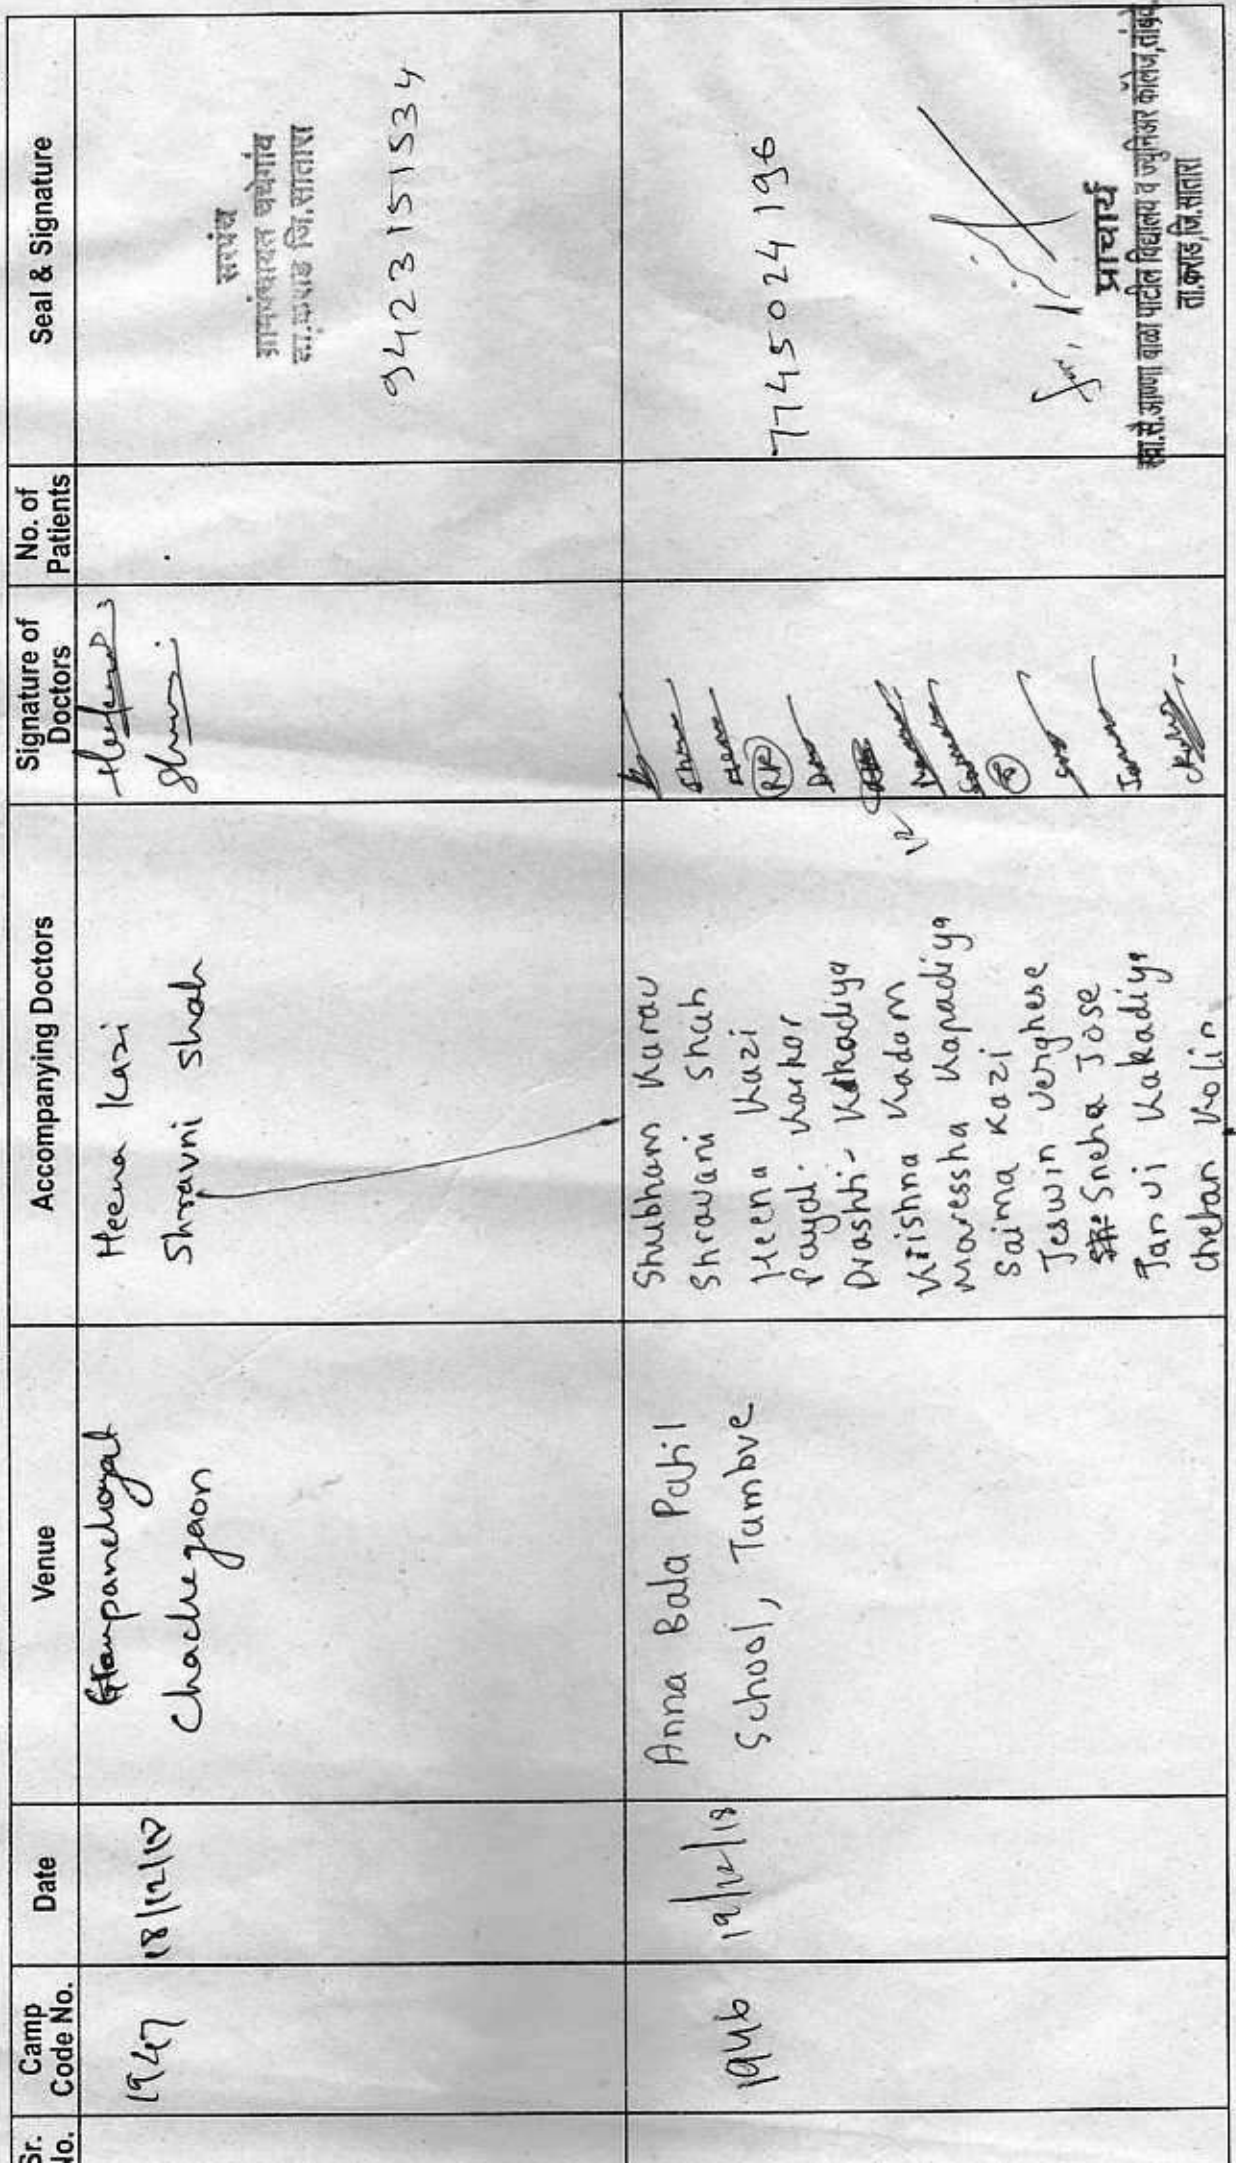 Sr. No.
Camp Code No.
Date
Venue
Accompanying Doctors
Signature of Doctors
No. of Patients
Seal & Signature
1947
18/12/18
Grampanchayat
Chachegaon
Heena Kazi
Shravni Shah
सरपंच
ग्रामपंचायत चचेगांव
ता.कराड जि.सातारा
9423151534
1946
19/12/18
Anna Bala Patil
School, Tambve
Shubham Karav
Shravani Shah
Heena Kazi
Payal. Karkar
Drashti- Kakadiya
Krishna Kadam
Maressha Kapadiya
12
Saima Kazi
Jeswin Verghese
Sneha Jose
Tanvi Kakadiya
Chetan Kolin
RK
7745024196
प्राचार्य
स्वा.सै.आण्णा बाळा पाटील विद्यालय व ज्युनिअर कॉलेज,तांबवे
ता.कराड,जि.सातारा